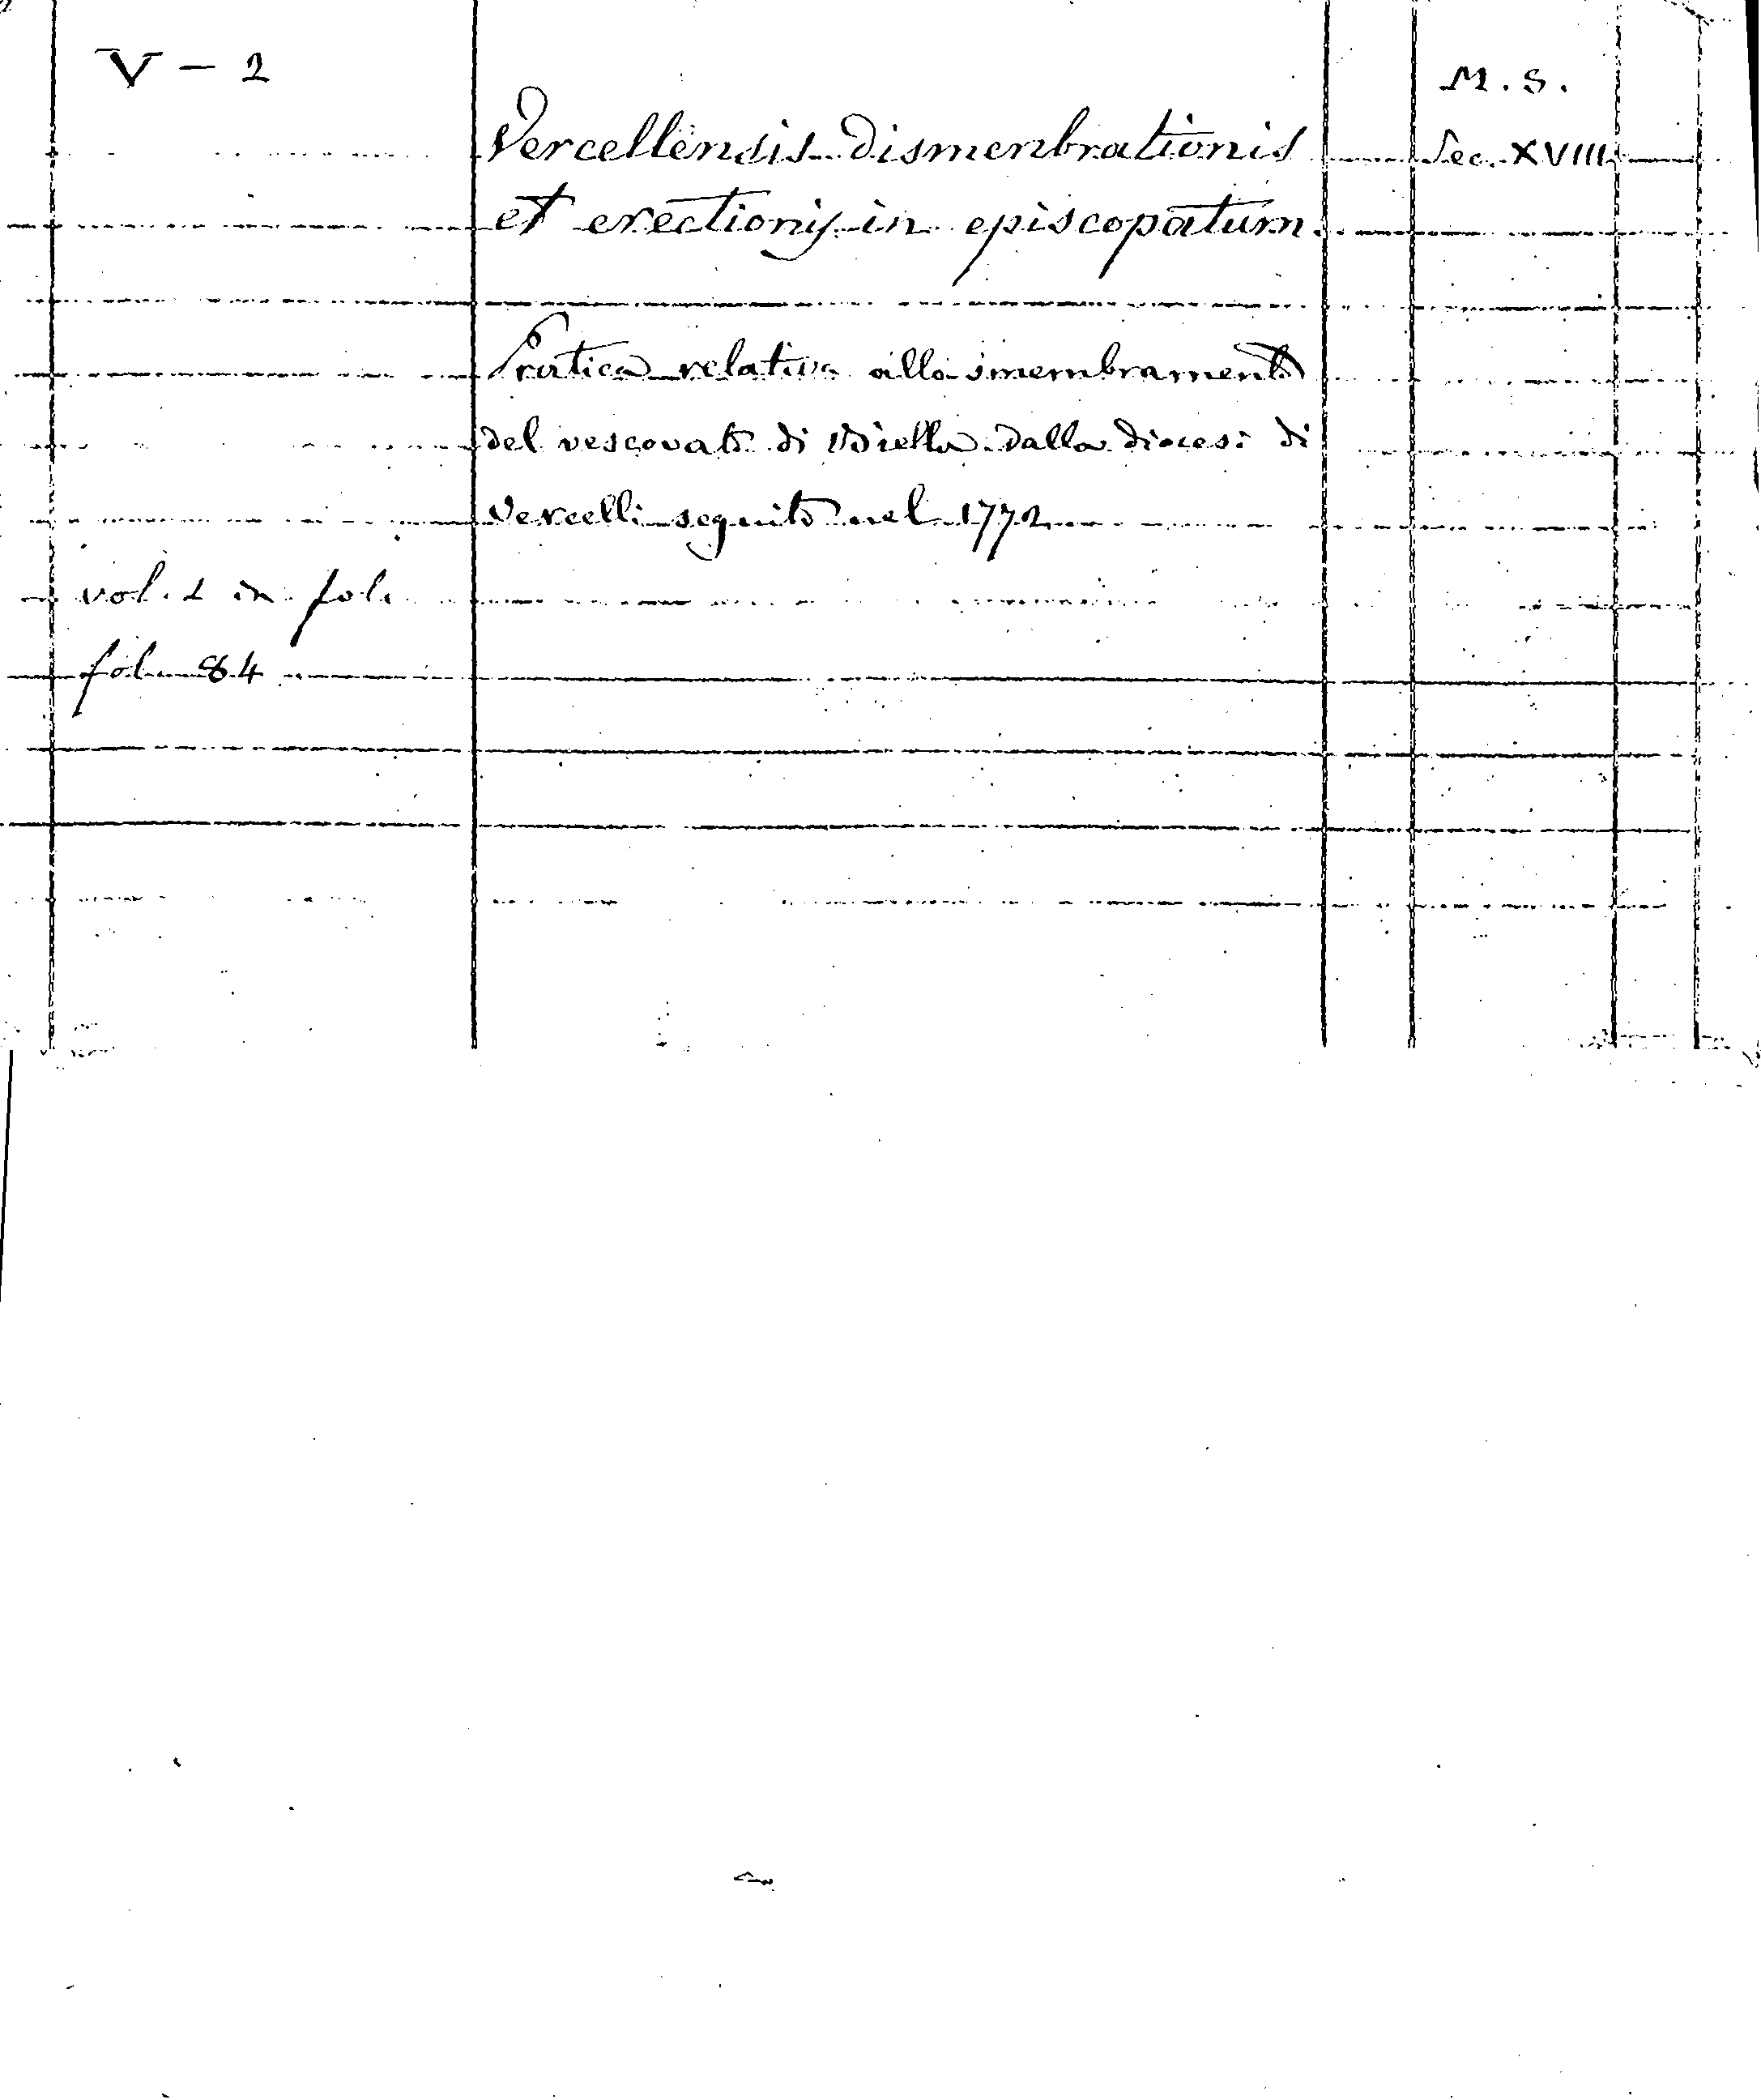 V - 2
M. S.
Vercellensis dismenbrationis
Sec. XVIII
et erectionis in episcopatum
Pratica relativa allo smembramento
del vescovato di Biella dalla diocesi di
Vercelli seguito nel 1772
vol. 1 in fol.
fol. 84